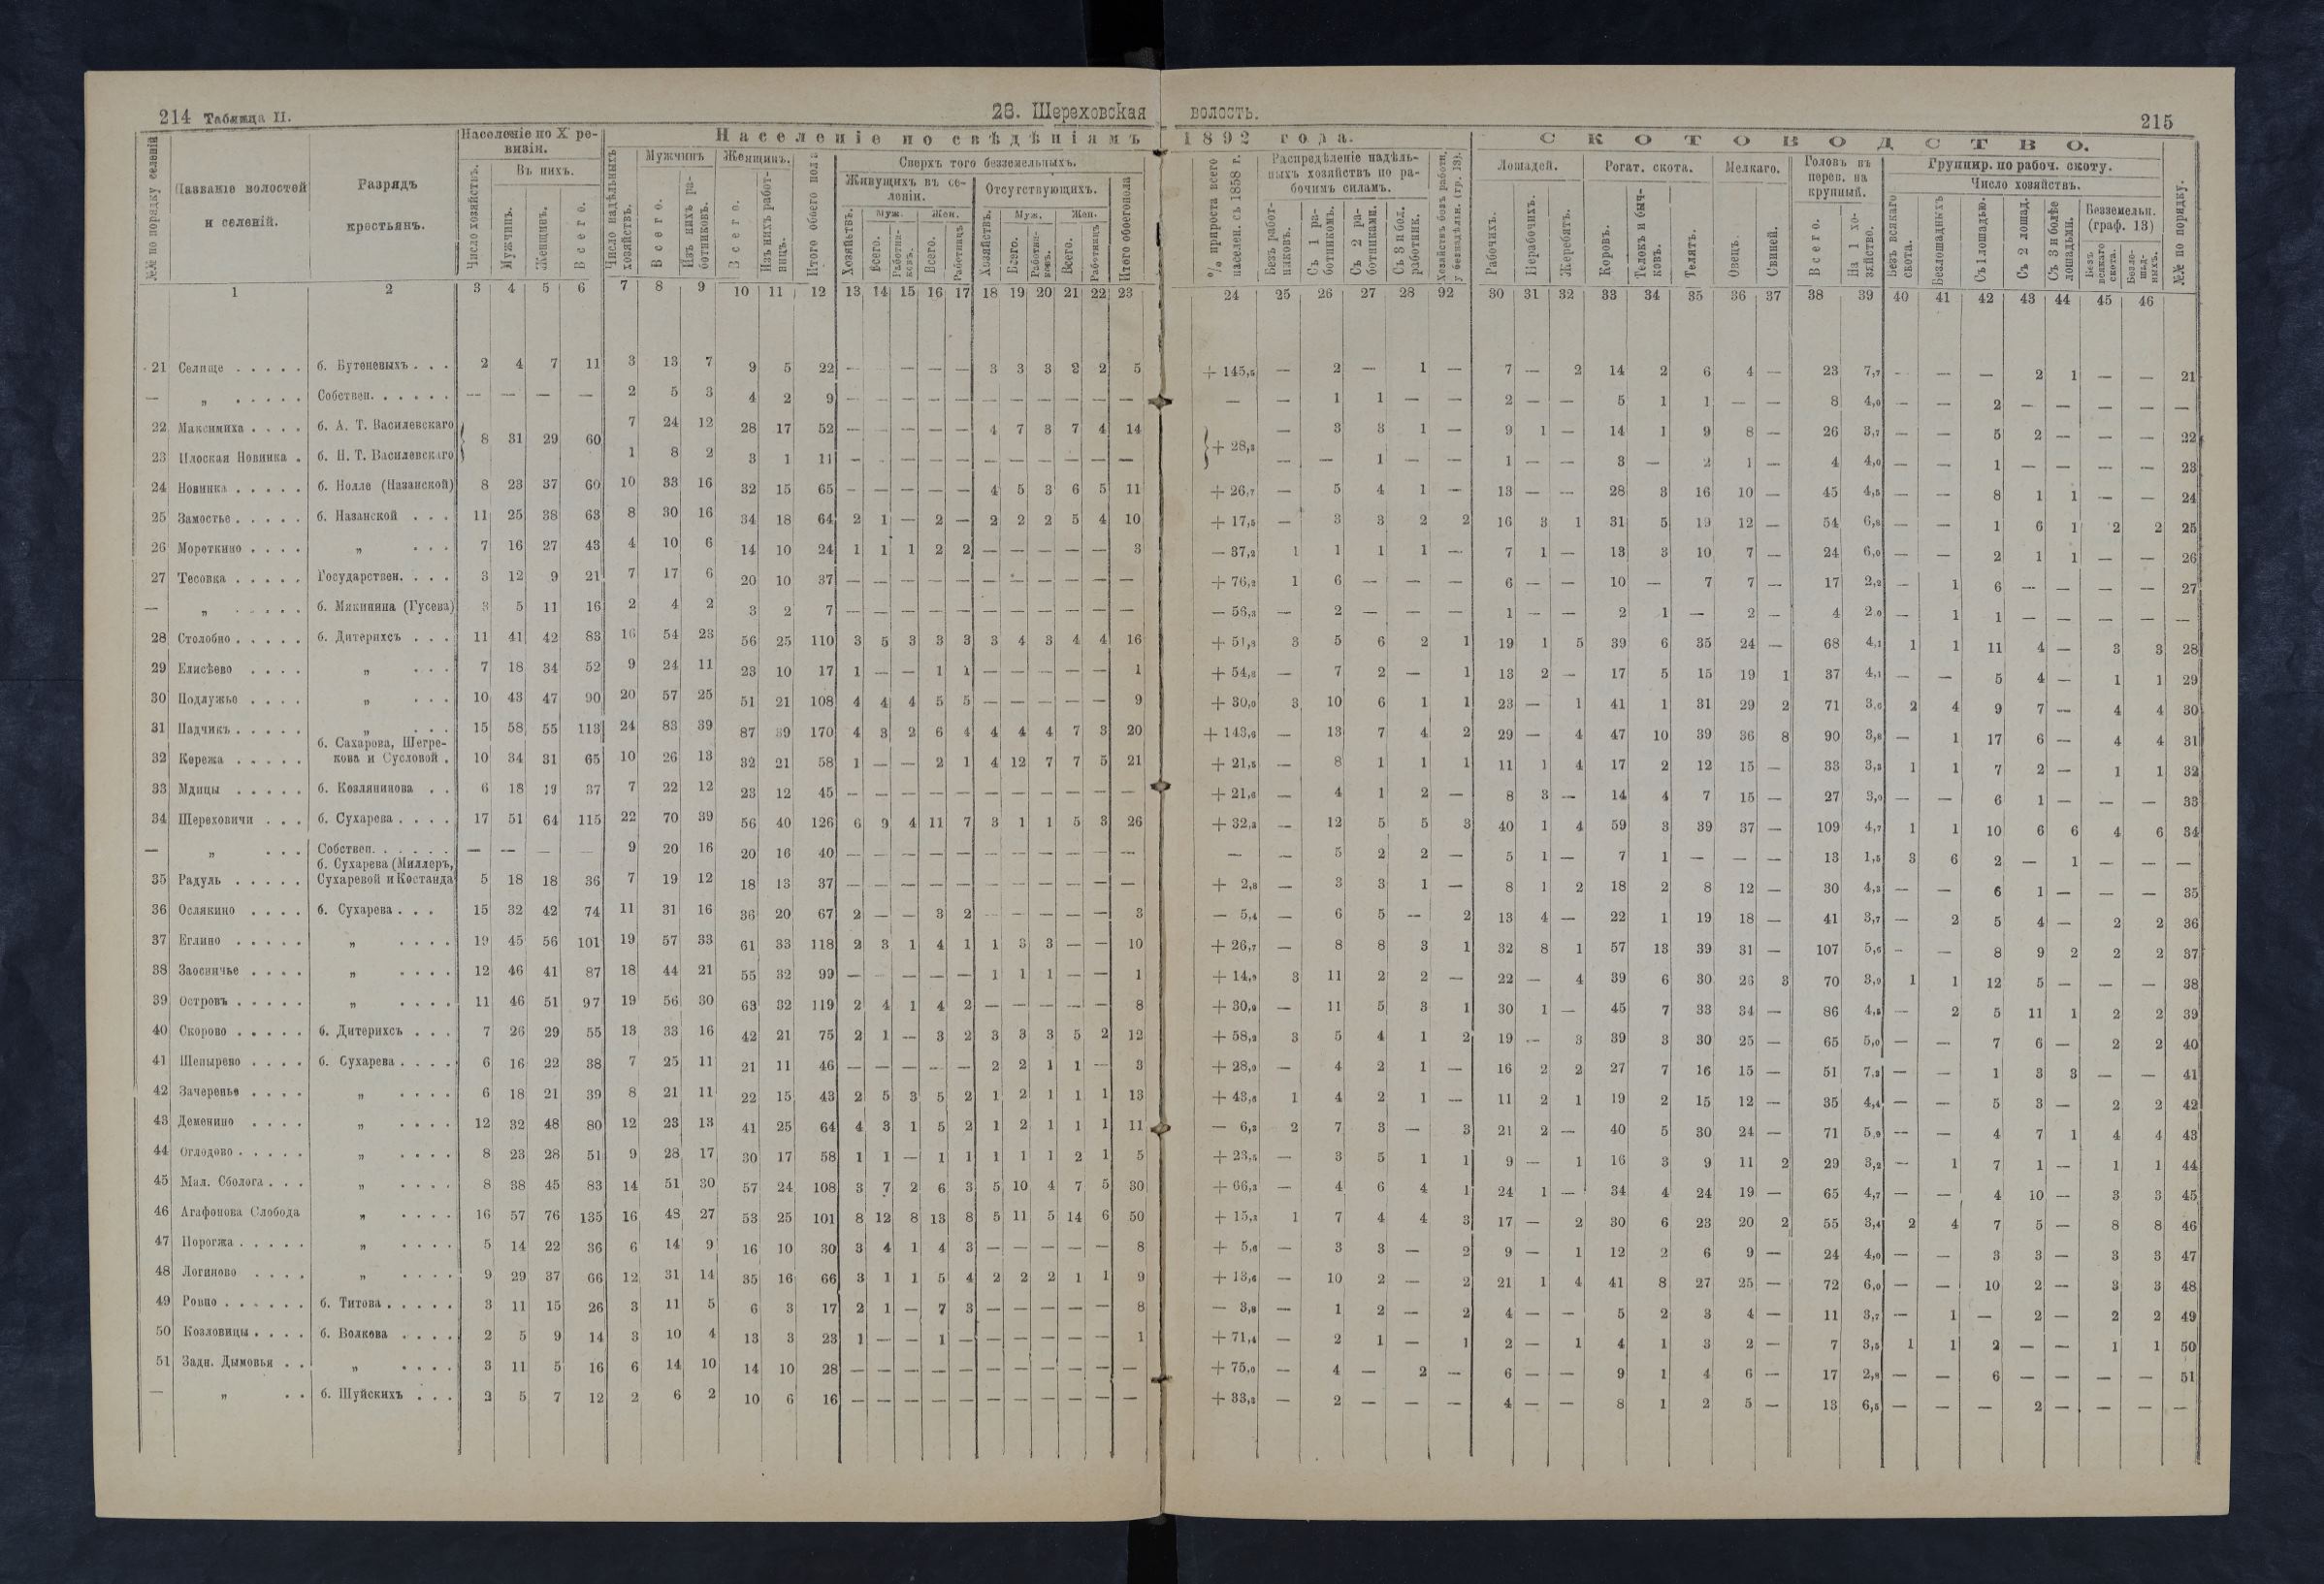 214 Таблица II.
28. Шереховская волость.
215
№№ по порядку селеній
Названіе волостей и селеній.
Разрядъ крестьянъ.
Населеніе по X ревизіи.
Число хозяйствъ.
Въ нихъ.
Мужчинъ.
Женщинъ.
Всего.
Населеніе по свѣдѣніямъ 1892 года.
Число надѣльныхъ хозяйствъ.
Мужчинъ
Всего.
Изъ нихъ работниковъ.
Женщинъ.
Всего.
Изъ нихъ работницъ.
Итого обоего пола
Сверхъ того безземельныхъ.
Живущихъ въ селеніи.
Хозяйствъ.
Муж.
Всего.
Работниковъ.
Жен.
Всего.
Работницъ
Отсутствующихъ.
Хозяйствъ.
Муж.
Всего.
Работниковъ.
Жен.
Всего.
Работницъ
Итого обоего пола
% прироста всего населен. съ 1858 г.
Распредѣленіе надѣльныхъ хозяйствъ по рабочимъ силамъ.
Безъ работниковъ.
Съ 1 работникомъ.
Съ 2 работниками.
Съ 3 и бол. работник.
Хозяйствъ безъ работн. у безнадѣльн. (гр. 13).
СКОТОВОДСТВО.
Лошадей.
Рабочихъ.
Нерабочихъ.
Жеребятъ.
Рогат. скота.
Коровъ.
Телокъ и бычковъ.
Телятъ.
Мелкаго.
Овецъ.
Свиней.
Головъ въ перев. на крупный.
Всего.
На 1 хозяйство.
Группир. по рабоч. скоту.
Число хозяйствъ.
Безъ всякаго скота.
Безлошадныхъ
Съ 1 лошадью.
Съ 2 лошад.
Съ 3 и болѣе лошадьми.
Безземельн. (граф. 13)
Безъ всякаго скота.
Безлошадныхъ.
№№ по порядку.
1 2 3 4 5 6 7 8 9 10 11 12 13 14 15 16 17 18 19 20 21 22 23 24 25 26 27 28 92 30 31 32 33 34 35 36 37 38 39 40 41 42 43 44 45 46
21 Селище . . . . . б. Бутеневыхъ . . . 2 4 7 11 3 13 7 9 5 22 — — — — — 3 3 3 2 2 5 + 145,5 — 2 — 1 — 7 — 2 14 2 6 4 — 23 7,7 — — — 2 1 — — 21
— „ . . . . . Собствен. . . . . . — — — — 2 5 3 4 2 9 — — — — — — — — — — — — — 1 1 — — 2 — — 5 1 1 — — 8 4,0 — — 2 — — — — —
22 Максимиха . . . . б. А. Т. Василевскаго } 8 31 29 60 7 24 12 28 17 52 — — — — — 4 7 3 7 4 14 } + 28,3 — 3 3 1 — 9 1 — 14 1 9 8 — 26 3,7 — — 5 2 — — — 22
23 Плоская Новинка . б. Н. Т. Василевскаго 1 8 2 3 1 11 — — — — — — — — — — — — — 1 — — 1 — — 3 — 2 1 — 4 4,0 — — 1 — — — — 23
24 Новинка . . . . . б. Нолле (Назанской) 8 23 37 60 10 33 16 32 15 65 — — — — — 4 5 3 6 5 11 + 26,7 — 5 4 1 — 13 — — 28 3 16 10 — 45 4,5 — — 8 1 1 — — 24
25 Замостье . . . . . б. Назанской . . . 11 25 38 63 8 30 16 34 18 64 2 1 — 2 — 2 2 2 5 4 10 + 17,5 — 3 3 2 2 16 3 1 31 5 19 12 — 54 6,8 — — 1 6 1 2 2 25
26 Мороткино . . . . „ . . . 7 16 27 43 4 10 6 14 10 24 1 1 1 2 2 — — — — — 3 — 37,2 1 1 1 1 — 7 1 — 13 3 10 7 — 24 6,0 — — 2 1 1 — — 26
27 Тесовка . . . . . Государствен. . . . 3 12 9 21 7 17 6 20 10 37 — — — — — — — — — — — + 76,2 1 6 — — — 6 — — 10 — 7 7 — 17 2,2 — 1 6 — — — — 27
— „ . . . . . б. Мякинина (Гусева) 3 5 11 16 2 4 2 3 2 7 — — — — — — — — — — — — 56,3 — 2 — — — 1 — — 2 1 — 2 — 4 2,0 — 1 1 — — — — —
28 Столобно . . . . . б. Дитерихсъ . . . 11 41 42 83 16 54 23 56 25 110 3 5 3 3 3 3 4 3 4 4 16 + 51,8 3 5 6 2 1 19 1 5 39 6 35 24 — 68 4,1 1 1 11 4 — 3 3 28
29 Елисѣево . . . . „ . . . 7 18 34 52 9 24 11 23 10 17 1 — — 1 1 — — — — — 1 + 54,8 — 7 2 — 1 13 2 — 17 5 15 19 1 37 4,1 — — 5 4 — 1 1 29
30 Подлужье . . . . „ . . . 10 43 47 90 20 57 25 51 21 108 4 4 4 5 5 — — — — — 9 + 30,0 3 10 6 1 1 23 — 1 41 1 31 29 2 71 3,6 2 4 9 7 — 4 4 30
31 Падчикъ . . . . . „ . . . 15 58 55 113 24 83 39 87 39 170 4 3 2 6 4 4 4 4 7 3 20 + 143,6 — 13 7 4 2 29 — 4 47 10 39 36 8 90 3,8 — 1 17 6 — 4 4 31
32 Кережа . . . . . б. Сахарова, Шегрекова и Сусловой . 10 34 31 65 10 26 13 32 21 58 1 — — 2 1 4 12 7 7 5 21 + 21,5 — 8 1 1 1 11 1 4 17 2 12 15 — 33 3,3 1 1 7 2 — 1 1 32
33 Мдицы . . . . . б. Козлянинова . . 6 18 19 37 7 22 12 23 12 45 — — — — — — — — — — — + 21,6 — 4 1 2 — 8 3 — 14 4 7 15 — 27 3,9 — — 6 1 — — — 33
34 Шереховичи . . . б. Сухарева . . . . 17 51 64 115 22 70 39 56 40 126 6 9 4 11 7 3 1 1 5 3 26 + 32,3 — 12 5 5 3 40 1 4 59 3 39 37 — 109 4,7 1 1 10 6 6 4 6 34
— „ . . . Собствен. . . . . . — — — — 9 20 16 20 16 40 — — — — — — — — — — — — — 5 2 2 — 5 1 — 7 1 — — — 13 1,5 3 6 2 — 1 — — —
35 Радуль . . . . . б. Сухарева (Миллеръ, Сухаревой и Костанда 5 18 18 36 7 19 12 18 13 37 — — — — — — — — — — — + 2,8 — 3 3 1 — 8 1 2 18 2 8 12 — 30 4,3 — — 6 1 — — — 35
36 Ослякино . . . . б. Сухарева . . . 15 32 42 74 11 31 16 36 20 67 2 — — 3 2 — — — — — 3 — 5,4 — 6 5 — 2 13 4 — 22 1 19 18 — 41 3,7 — 2 5 4 — 2 2 36
37 Еглино . . . . . „ . . . . 19 45 56 101 19 57 33 61 33 118 2 3 1 4 1 1 3 3 — — 10 + 26,7 — 8 8 3 1 32 8 1 57 13 39 31 — 107 5,6 — — 8 9 2 2 2 37
38 Заосничье . . . . „ . . . . 12 46 41 87 18 44 21 55 32 99 — — — — — 1 1 1 — — 1 + 14,9 3 11 2 2 — 22 — 4 39 6 30 26 3 70 3,9 1 1 12 5 — — — 38
39 Островъ . . . . . „ . . . . 11 46 51 97 19 56 30 63 32 119 2 4 1 4 2 — — — — — 8 + 30,9 — 11 5 3 1 30 1 — 45 7 33 34 — 86 4,5 — 2 5 11 1 2 2 39
40 Скорово . . . . . б. Дитерихсъ . . . 7 26 29 55 13 33 16 42 21 75 2 1 — 3 2 3 3 3 5 2 12 + 58,2 3 5 4 1 2 19 — 3 39 3 30 25 — 65 5,0 — — 7 6 — 2 2 40
41 Шепырево . . . . б. Сухарева . . . . 6 16 22 38 7 25 11 21 11 46 — — — — — 2 2 1 1 — 3 + 28,9 — 4 2 1 — 16 2 2 27 7 16 15 — 51 7,3 — — 1 3 3 — — 41
42 Зачеренье . . . . „ . . . . 6 18 21 39 8 21 11 22 15 43 2 5 3 5 2 1 2 1 1 1 13 + 43,6 1 4 2 1 — 11 2 1 19 2 15 12 — 35 4,4 — — 5 3 — 2 2 42
43 Деменино . . . . „ . . . . 12 32 48 80 12 23 13 41 25 64 4 3 1 5 2 1 2 1 1 1 11 — 6,3 2 7 3 — 3 21 2 — 40 5 30 24 — 71 5,9 — — 4 7 1 4 4 43
44 Оглодово . . . . . „ . . . . 8 23 28 51 9 28 17 30 17 58 1 1 — 1 1 1 1 1 2 1 5 + 23,5 — 3 5 1 1 9 — 1 16 3 9 11 2 29 3,2 — 1 7 1 — 1 1 44
45 Мал. Сболога . . . „ . . . . 8 38 45 83 14 51 30 57 24 108 3 7 2 6 3 5 10 4 7 5 30 + 66,3 — 4 6 4 1 24 1 — 34 4 24 19 — 65 4,7 — — 4 10 — 3 3 45
46 Агафонова Слобода „ . . . . 16 57 76 135 16 48 27 53 25 101 8 12 8 13 8 5 11 5 14 6 50 + 15,2 1 7 4 4 3 17 — 2 30 6 23 20 2 55 3,4 2 4 7 5 — 8 8 46
47 Порогжа . . . . . „ . . . . 5 14 22 36 6 14 9 16 10 30 3 4 1 4 3 — — — — — 8 + 5,6 — 3 3 — 2 9 — 1 12 2 6 9 — 24 4,0 — — 3 3 — 3 3 47
48 Логиново . . . . „ . . . . 9 29 37 66 12 31 14 35 16 66 3 1 1 5 4 2 2 2 1 1 9 + 13,6 — 10 2 — 2 21 1 4 41 8 27 25 — 72 6,0 — — 10 2 — 3 3 48
49 Ровно . . . . . . б. Титова . . . . . 3 11 15 26 3 11 5 6 3 17 2 1 — 7 3 — — — — — 8 — 3,8 — 1 2 — 2 4 — — 5 2 3 4 — 11 3,7 — 1 — 2 — 2 2 49
50 Козловицы . . . . б. Волкова . . . . 2 5 9 14 3 10 4 13 3 23 1 — — 1 — — — — — — 1 + 71,4 — 2 1 — 1 2 — 1 4 1 3 2 — 7 3,5 1 1 2 — — 1 1 50
51 Задн. Дымовьи . . „ . . . . 3 11 5 16 6 14 10 14 10 28 — — — — — — — — — — — + 75,0 — 4 — 2 — 6 — — 9 1 4 6 — 17 2,8 — — 6 — — — — 51
— „ . . б. Шуйскихъ . . . 2 5 7 12 2 6 2 10 6 16 — — — — — — — — — — — + 33,3 — 2 — — — 4 — — 8 1 2 5 — 13 6,5 — — — 2 — — — —